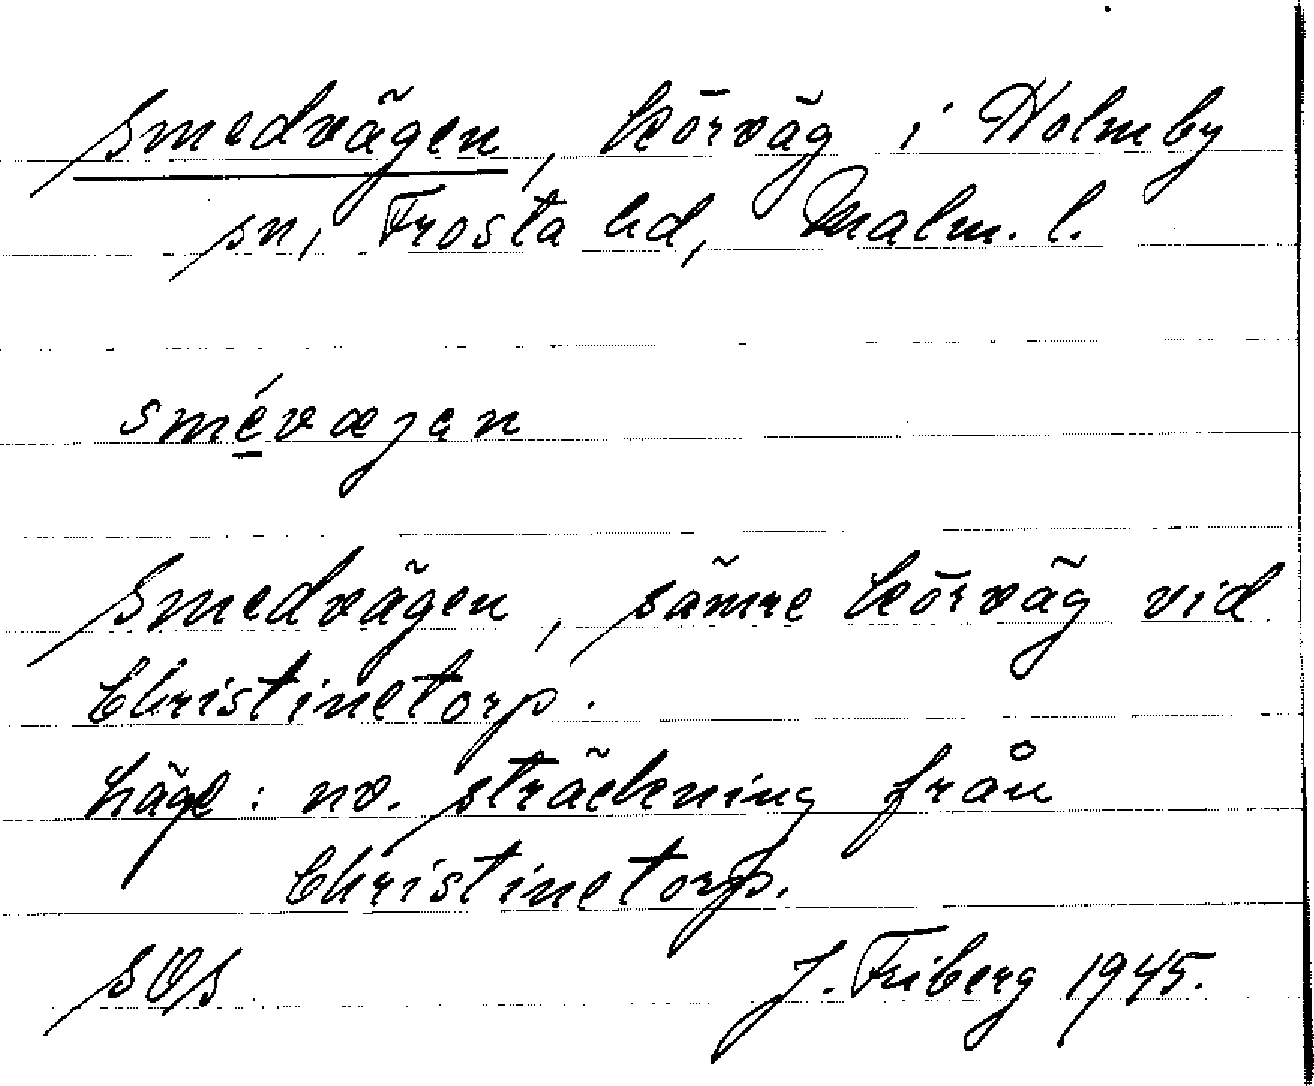 Smedvägen, körväg i Holmby
sn, Frosta hd, Malm. l.
smévæjen
Smedvägen, sämre körväg vid
Christinetorp.
Läge: nv. sträckning från
Christinetorp.
SOS J. Friberg 1945.